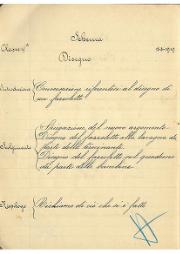 Schema
Classe
Disegno
Introduzione
Conversazione referentesi al disegno di
un fazzoletto
Spiegazione del nuovo argomento
Svolgimento
Disegno del fazzoletto alla lavagna da
parte della
Disegno del fazzoletto sul quaderno
da parte delle bambine
Riepilogo
Richiamo di ciò che si è fatto